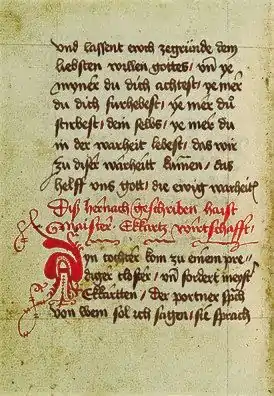 vnd lassent eẅch zegrunde dem
liebsten willen gottes / vn̄ ye
mynˀ du dich achtest / ye mer
du dich fürhebest / ye mer dů
stirbest / dem selbs / ye mer du
in der warheit lebest / das wir
zu diser warheitt kumen / das
helff vns gott / die ewig warheit
Dis hernach geschriben haist
Maister Ekkartz wirtschafft /
Ayn tochter kom zu einem pre=
diger closter / vn̄ fordert meyst̾
Ekkartten / Der portner spͣch
von wem sol ich sagen / sie sprach